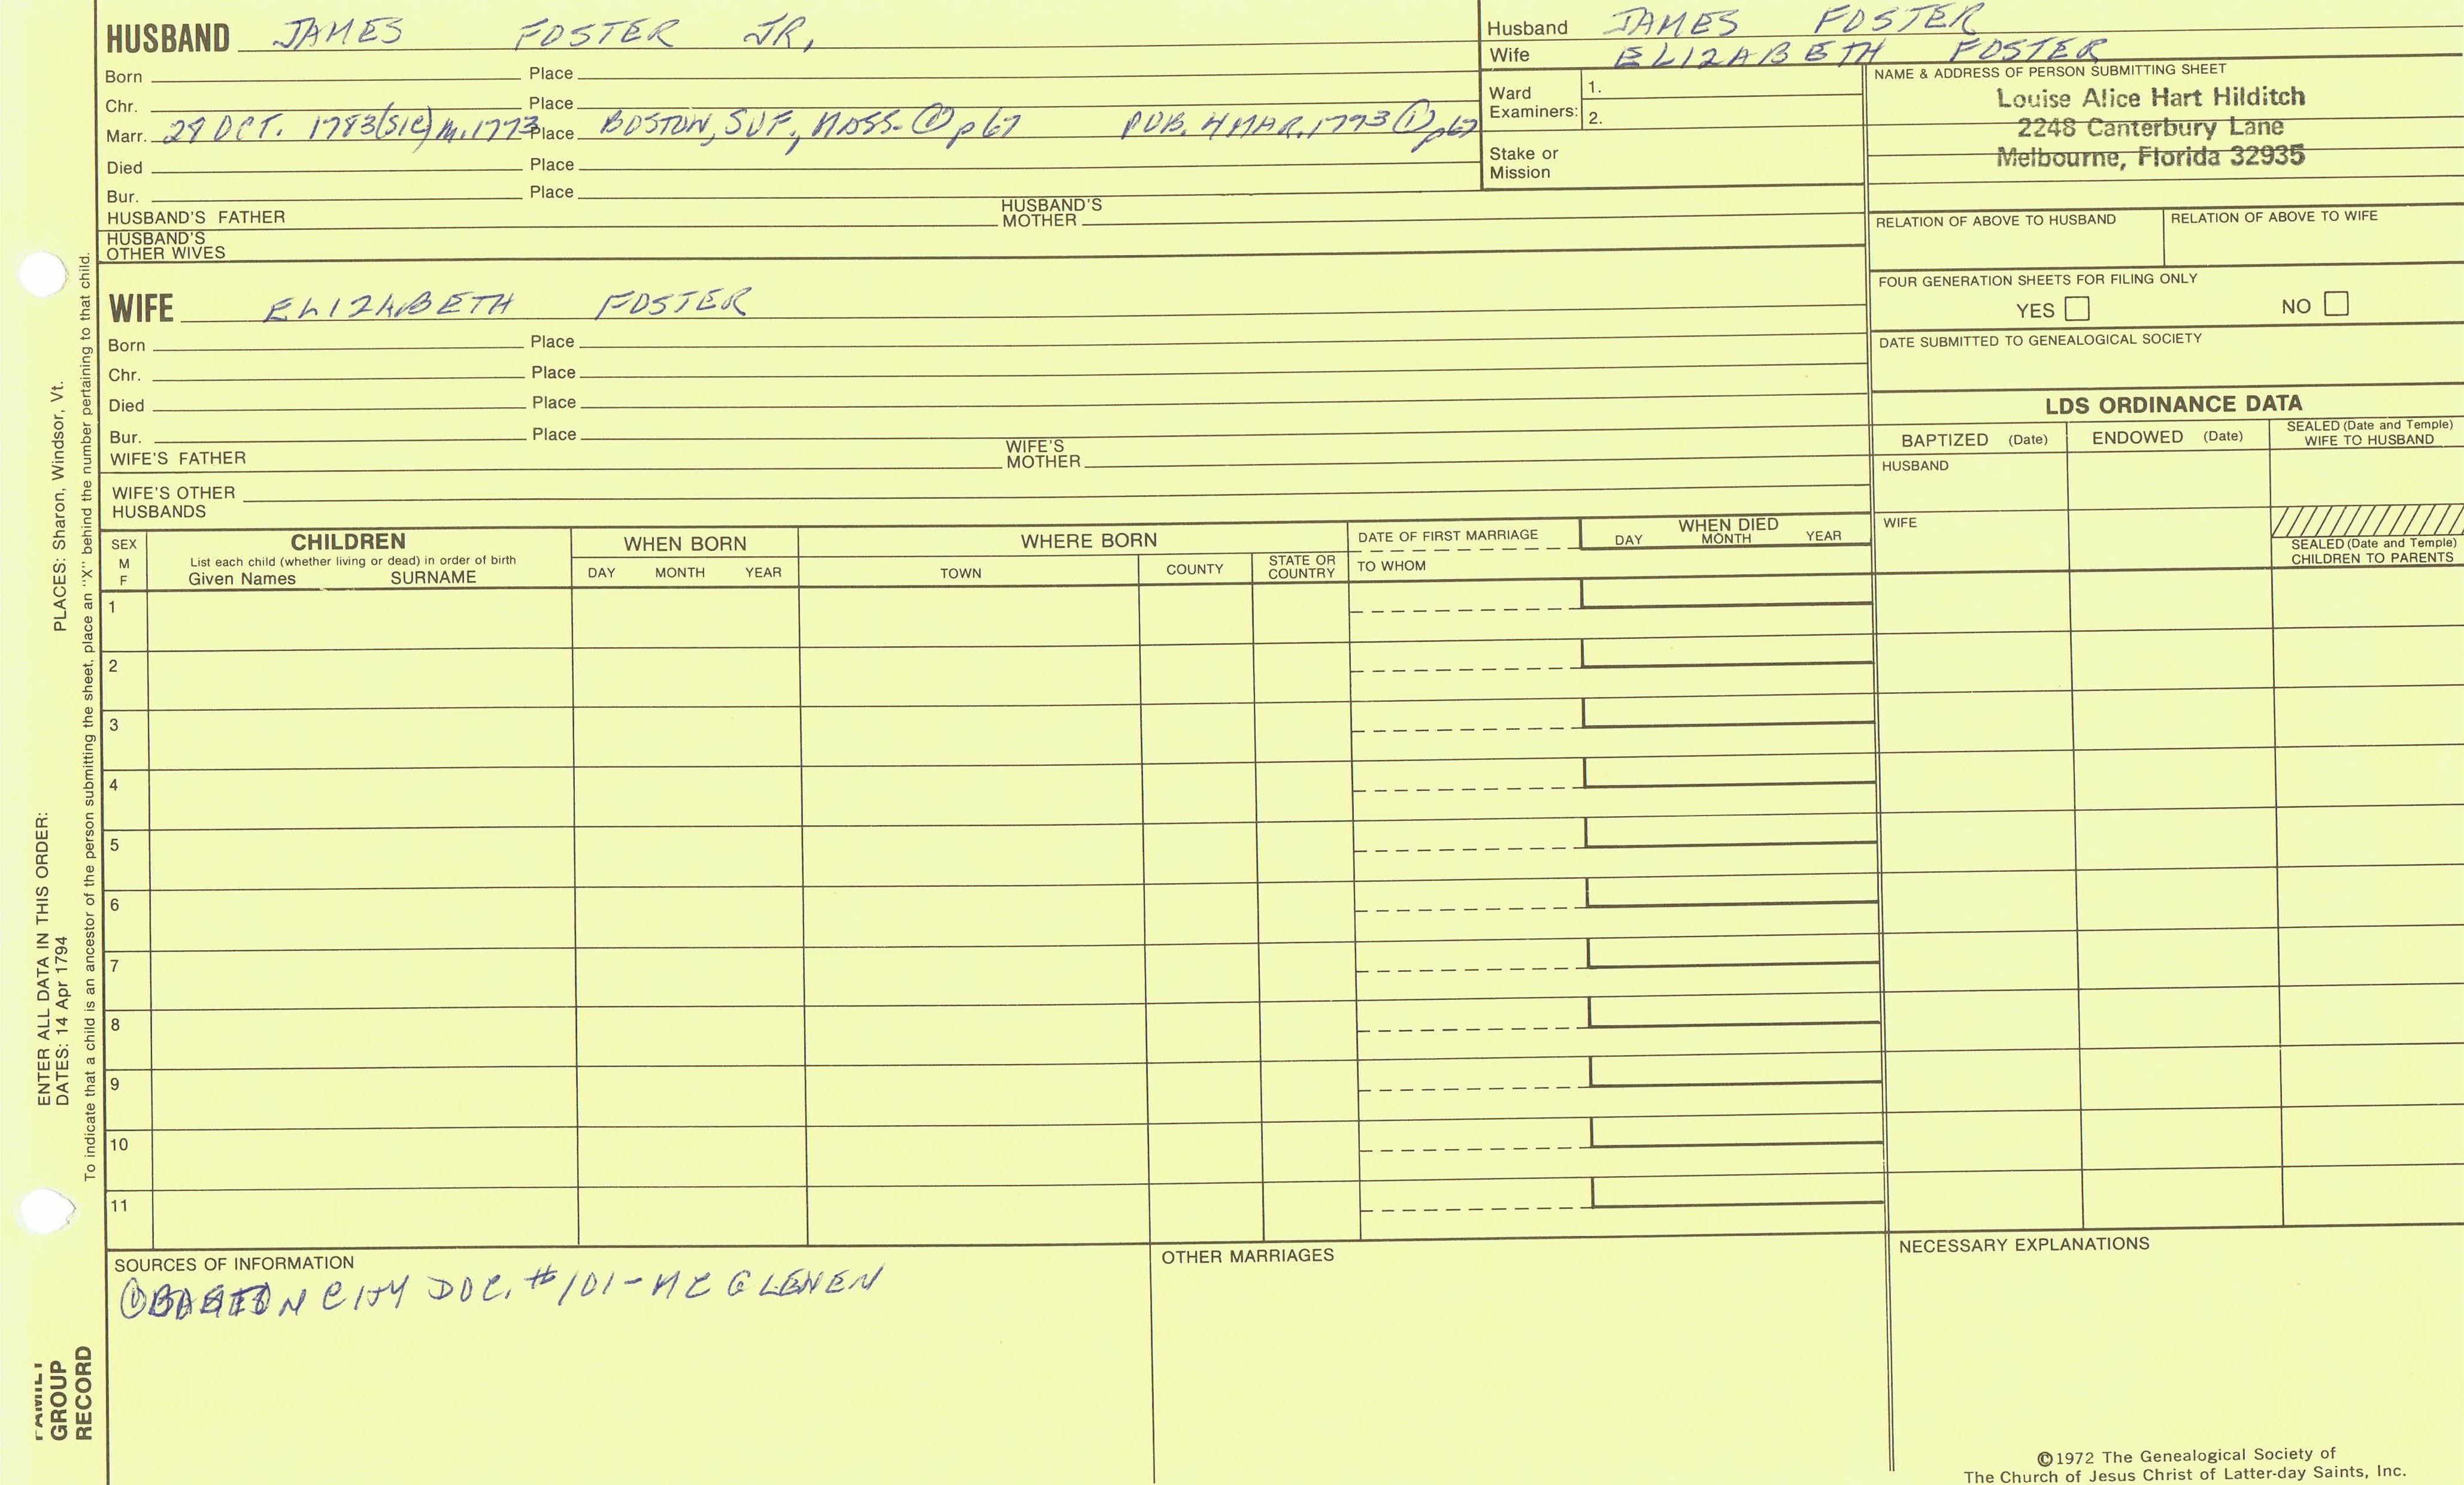 HUSBAND JAMES FOSTER JR.
Born Place
Chr. Place
Marr. 29 OCT. 1783(SIC) M. 1773 Place BOSTON, SUF., MASS. ① p67 PUB. 4 MAR. 1773 ① p67
Died Place
Bur. Place
HUSBAND'S FATHER HUSBAND'S MOTHER
HUSBAND'S
OTHER WIVES
Husband JAMES FOSTER
Wife ELIZABETH FOSTER
Ward
Examiners:
1.
2.
Stake or
Mission
NAME & ADDRESS OF PERSON SUBMITTING SHEET
Louise Alice Hart Hilditch
2248 Canterbury Lane
Melbourne, Florida 32935
RELATION OF ABOVE TO HUSBAND RELATION OF ABOVE TO WIFE
FOUR GENERATION SHEETS FOR FILING ONLY
YES NO
DATE SUBMITTED TO GENEALOGICAL SOCIETY
WIFE ELIZABETH FOSTER
Born Place
Chr. Place
Died Place
Bur. Place
WIFE'S FATHER WIFE'S MOTHER
WIFE'S OTHER
HUSBANDS
LDS ORDINANCE DATA
BAPTIZED (Date) ENDOWED (Date) SEALED (Date and Temple)
WIFE TO HUSBAND
HUSBAND
WIFE
SEALED (Date and Temple)
CHILDREN TO PARENTS
SEX
M
F
CHILDREN
List each child (whether living or dead) in order of birth
Given Names SURNAME
WHEN BORN
DAY MONTH YEAR
WHERE BORN
TOWN COUNTY STATE OR
COUNTRY
DATE OF FIRST MARRIAGE
TO WHOM
WHEN DIED
DAY MONTH YEAR
1
2
3
4
5
6
7
8
9
10
11
SOURCES OF INFORMATION
① BOSTON CITY DOC. #101-MC GLENEN
OTHER MARRIAGES
NECESSARY EXPLANATIONS
©1972 The Genealogical Society of
The Church of Jesus Christ of Latter-day Saints, Inc.
FAMILY
GROUP
RECORD
ENTER ALL DATA IN THIS ORDER:
DATES: 14 Apr 1794
PLACES: Sharon, Windsor, Vt.
To indicate that a child is an ancestor of the person submitting the sheet, place an "X" behind the number pertaining to that child.